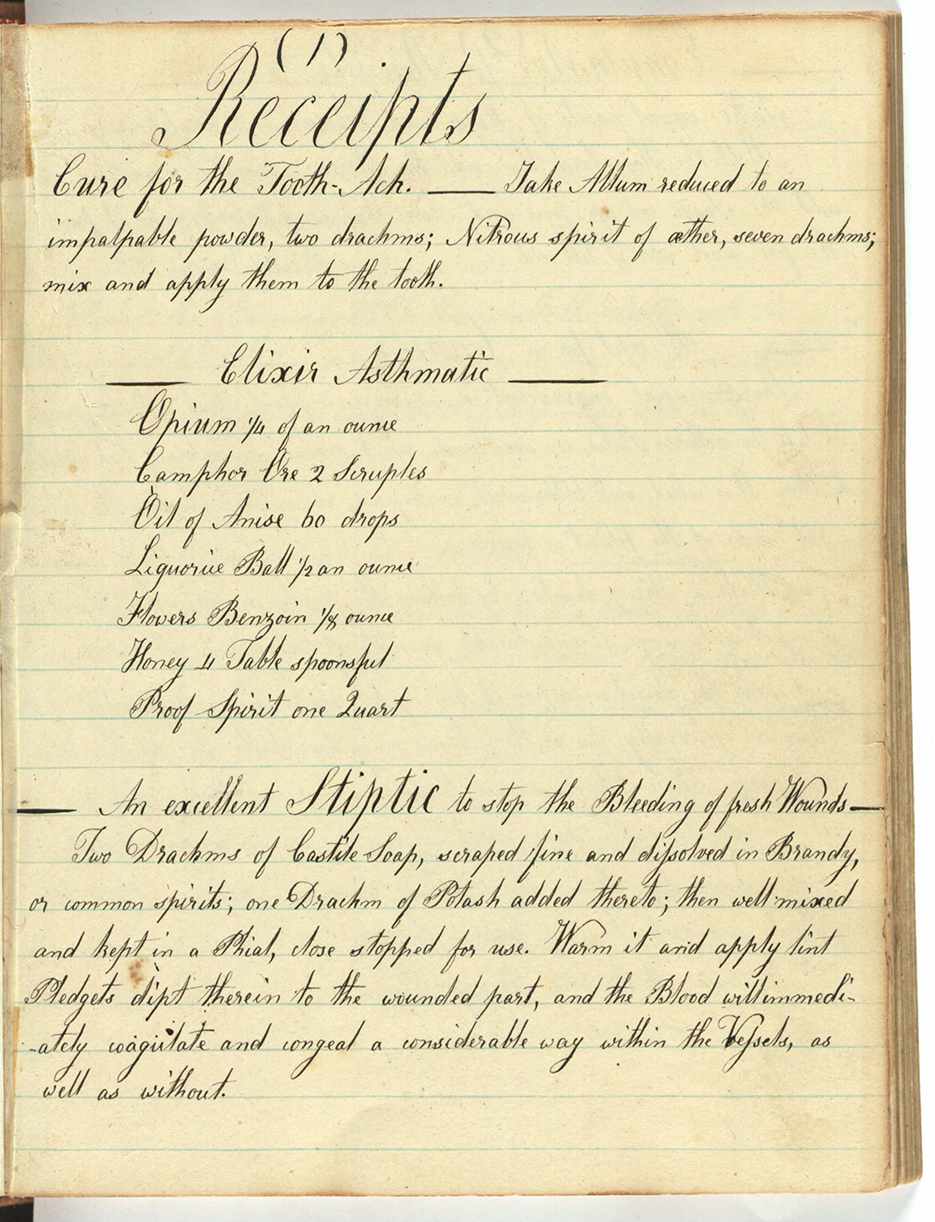 (1)
Receipts
Cure for the Tooth-Ach. — Take Allum reduced to an
impalpable powder, two drachms; Nitrous spirit of æther, seven drachms;
mix and apply them to the tooth.
— Elixir Asthmatic —
Opium 1/4 of an ounce
Camphor Ore 2 Scruples
Oil of Anise 60 drops
Liquorice Ball 1/2 an ounce
Flowers Benzoin 1/8 ounce
Honey 4 Table spoonsful
Proof Spirit one Quart
— An excellent Stiptic to stop the Bleeding of fresh Wounds —
Two Drachms of Castile Soap, scraped fine and dissolved in Brandy,
or common spirits; one Drachm of Potash added thereto; then well mixed
and kept in a Phial, close stopped for use. Warm it and apply lint
Pledgets dipt therein to the wounded part, and the Blood will immedi-
-ately coagulate and congeal a considerable way within the Vessels, as
well as without.